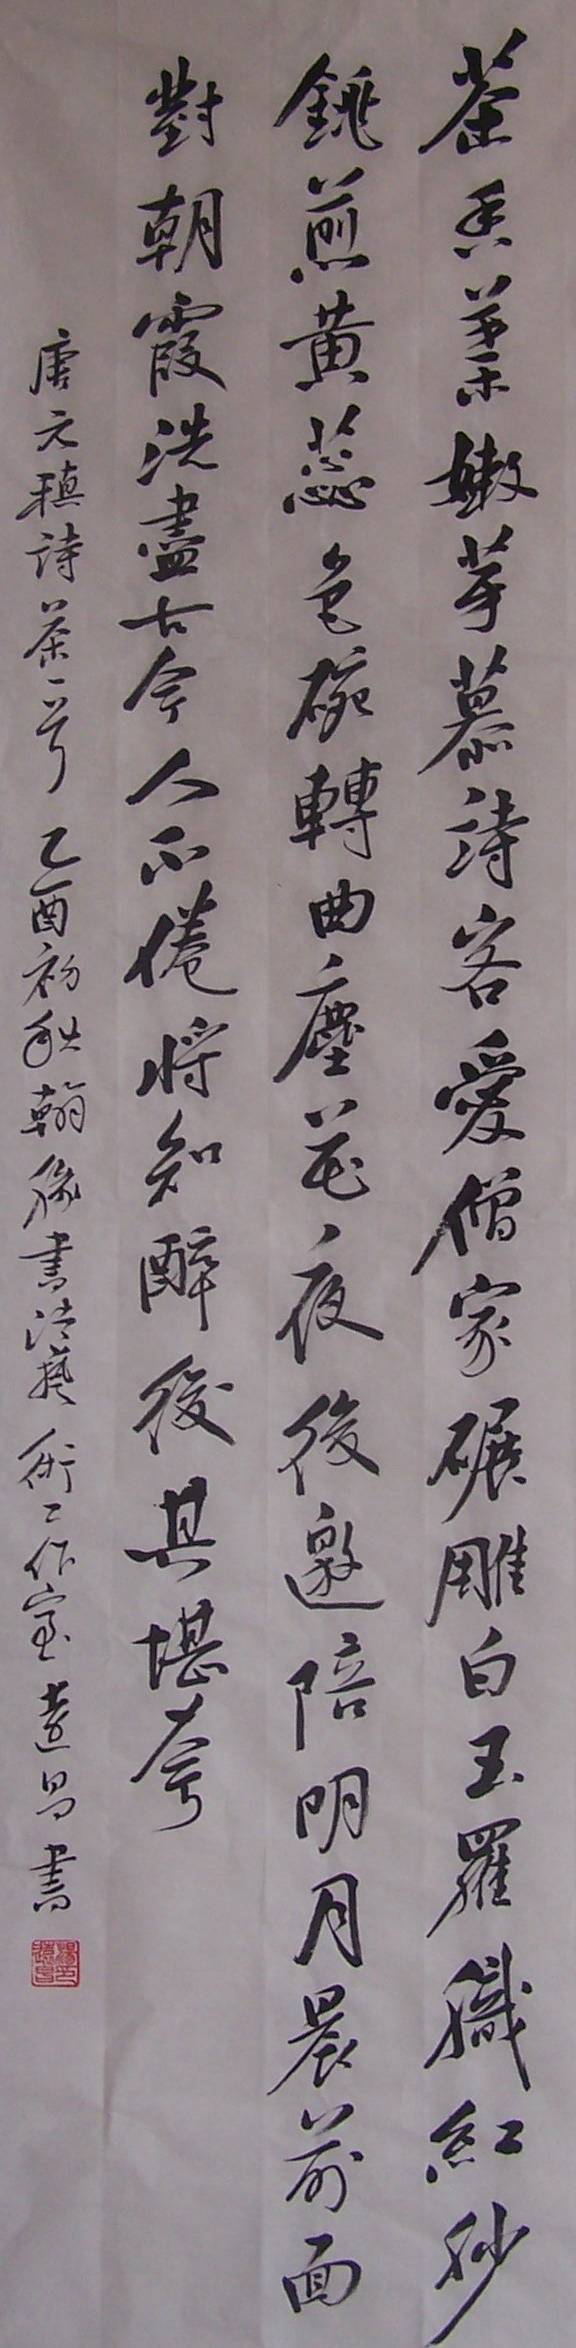 茶香葉嫩芽慕詩客愛僧家碾雕白玉羅織紅紗
銚煎黄蕊色碗轉曲塵花夜後邀陪明月晨前面
對朝霞洗盡古今人不倦將知醉後其堪夸
唐元稹詩茶一首 乙酉初秋翰緣書法藝術工作室遠昌書